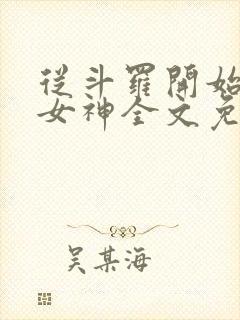 從斗羅開始
女神全文免
吴某海